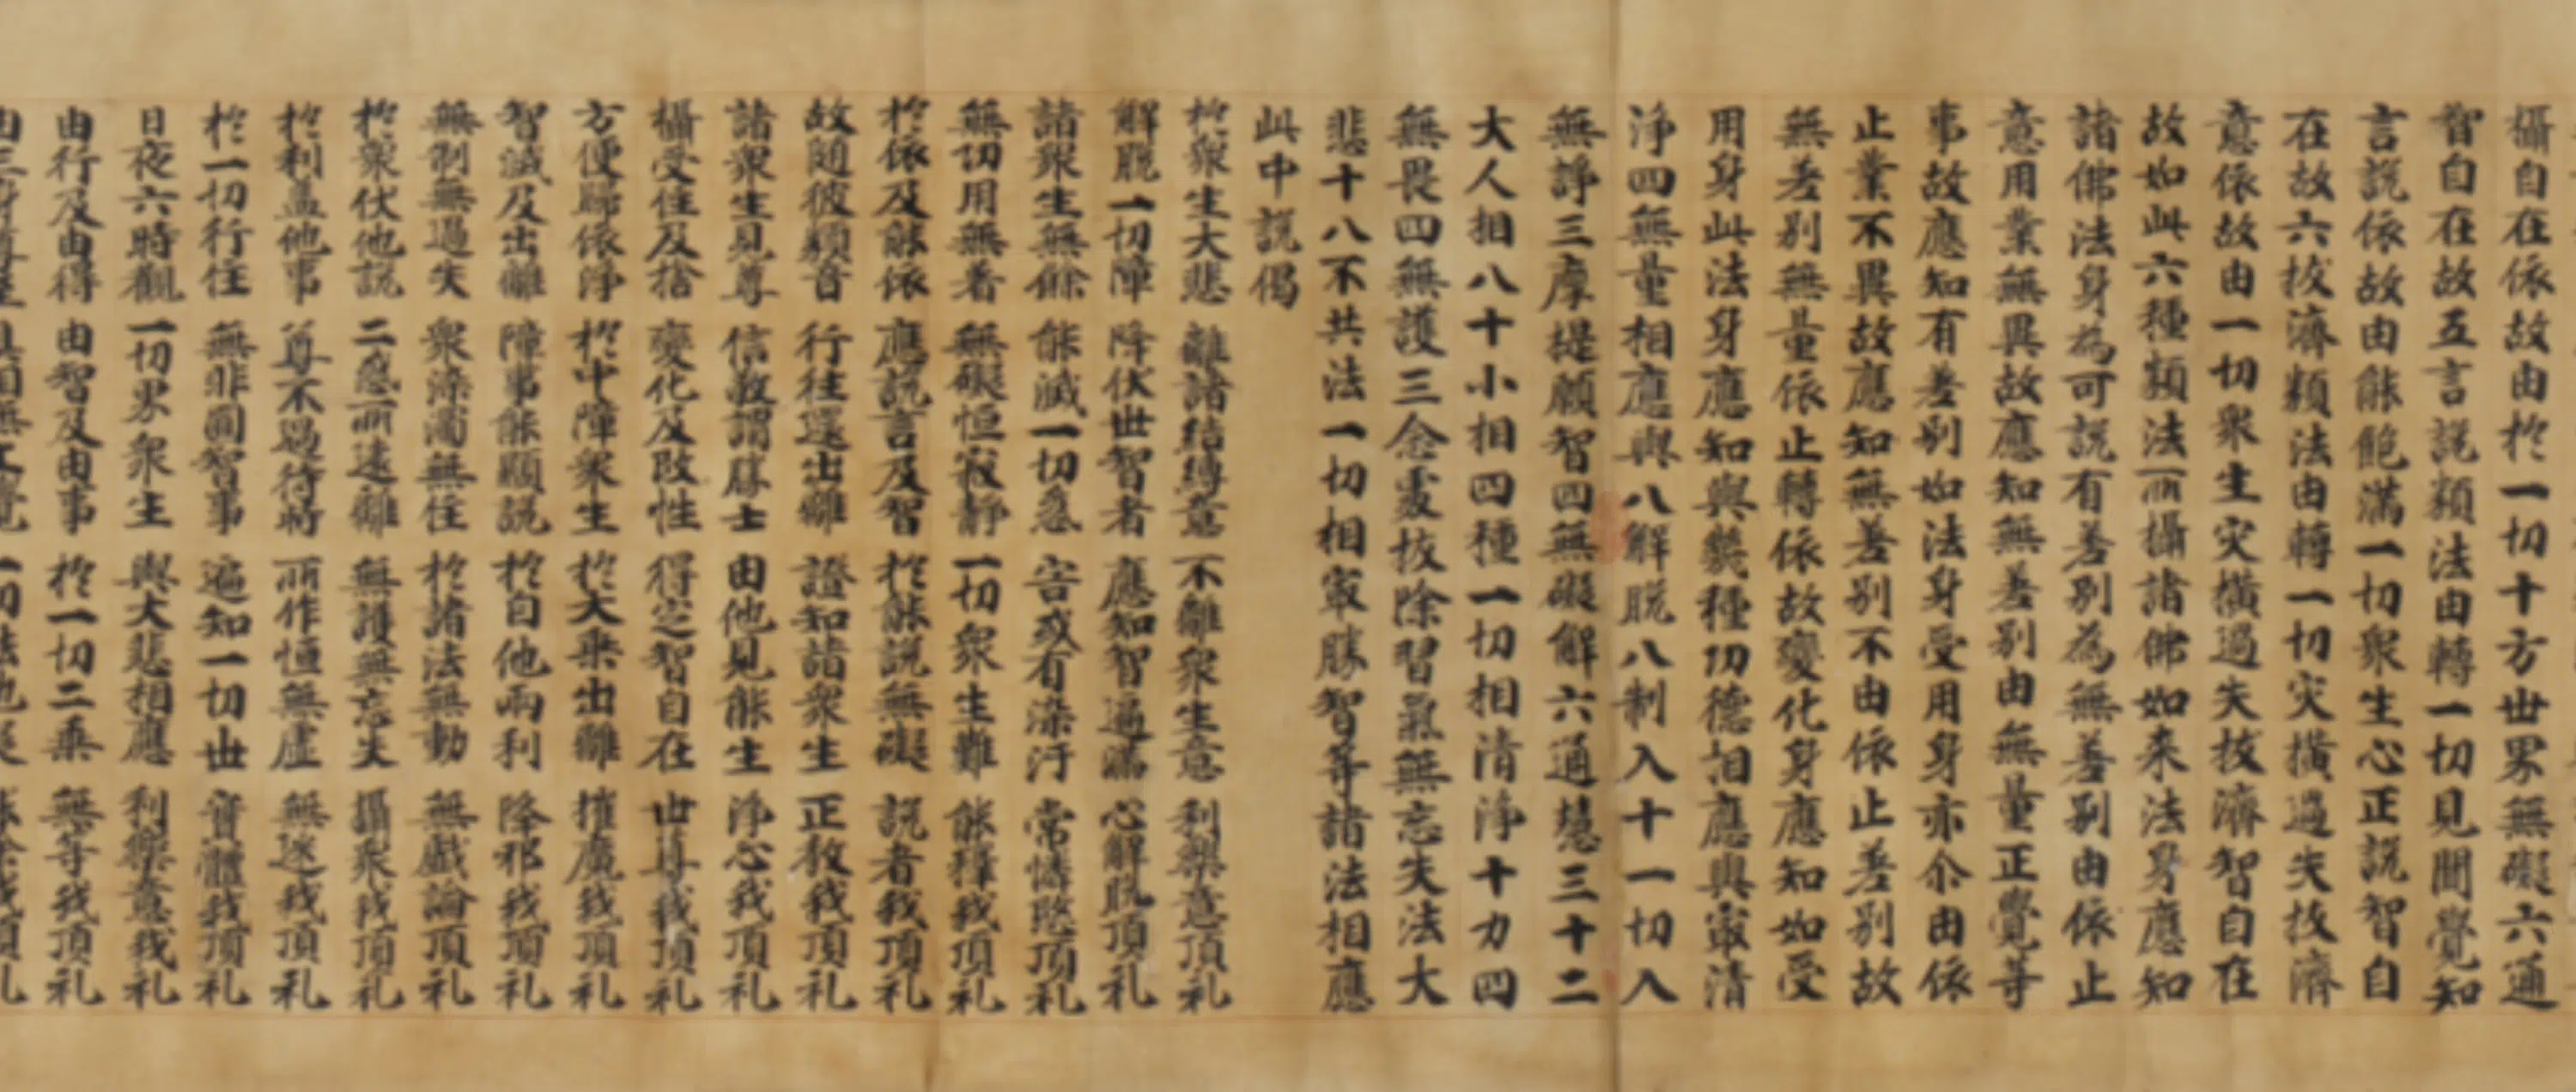 攝自在依故由扵一切十方世界無礙六通
智自在故五言說類法由轉一切見聞覺知
言說依故由能飽滿一切衆生心正說智自
在故六拔濟類法由轉一切灾橫過失拔濟
意依故由一切衆生灾橫過失拔濟智自在
故如此六種類法所攝諸佛如来法身應知
諸佛法身為可說有差別為無差別由依止
意用業無異故應知無差別由無量正覺等
事故應知有差別如法身受用身亦尒由依
止業不異故應知無差別不由依止差別故
無差別無量依止轉依故變化身應知如受
用身此法身應知與幾種功德相應與㝡清
淨四無量相應與八解脫八制入十一切入
無諍三摩提願智四無礙解六通慧三十二
大人相八十小相四種一切相清淨十力四
無畏四無護三念處拔除習氣無忘失法大
悲十八不共法一切相㝡勝智等諸法相應
此中說偈
扵衆生大悲 離諸結縛意 不離衆生意 利樂意頂礼
解脫一切障 降伏世智者 應知智遍滿 心解脫頂礼
諸衆生無餘 能滅一切惑 害或有染汙 常憐愍頂礼
無功用無着 無礙恒寂靜 一切衆生難 能釋我頂礼
扵依及能依 應說言及智 扵能說無礙 說者我頂礼
故随彼類音 行往還出離 證知諸衆生 正教我頂礼
諸衆生見尊 信敬謂勝士 由他見能生 淨心我頂礼
攝受住及捨 變化及改性 得定智自在 世尊我頂礼
方便歸依淨 扵中障衆生 扵大乗出離 摧魔我頂礼
智滅及出離 障事能顯說 扵自他兩利 降邪我頂礼
無制無過失 衆染濁無住 扵諸法無動 無戲論頂礼
扵衆伏他說 二惑所遠離 無護無忘失 攝衆我頂礼
扵利益他事 尊不過待時 所作恒無虛 無迷我頂礼
扵一切行住 無非圎智事 遍知一切世 實體我頂礼
日夜六時觀 一切界衆生 與大悲相應 利樂意我礼
由行及由得 由智及由事 扵一切二乗 無等我頂礼